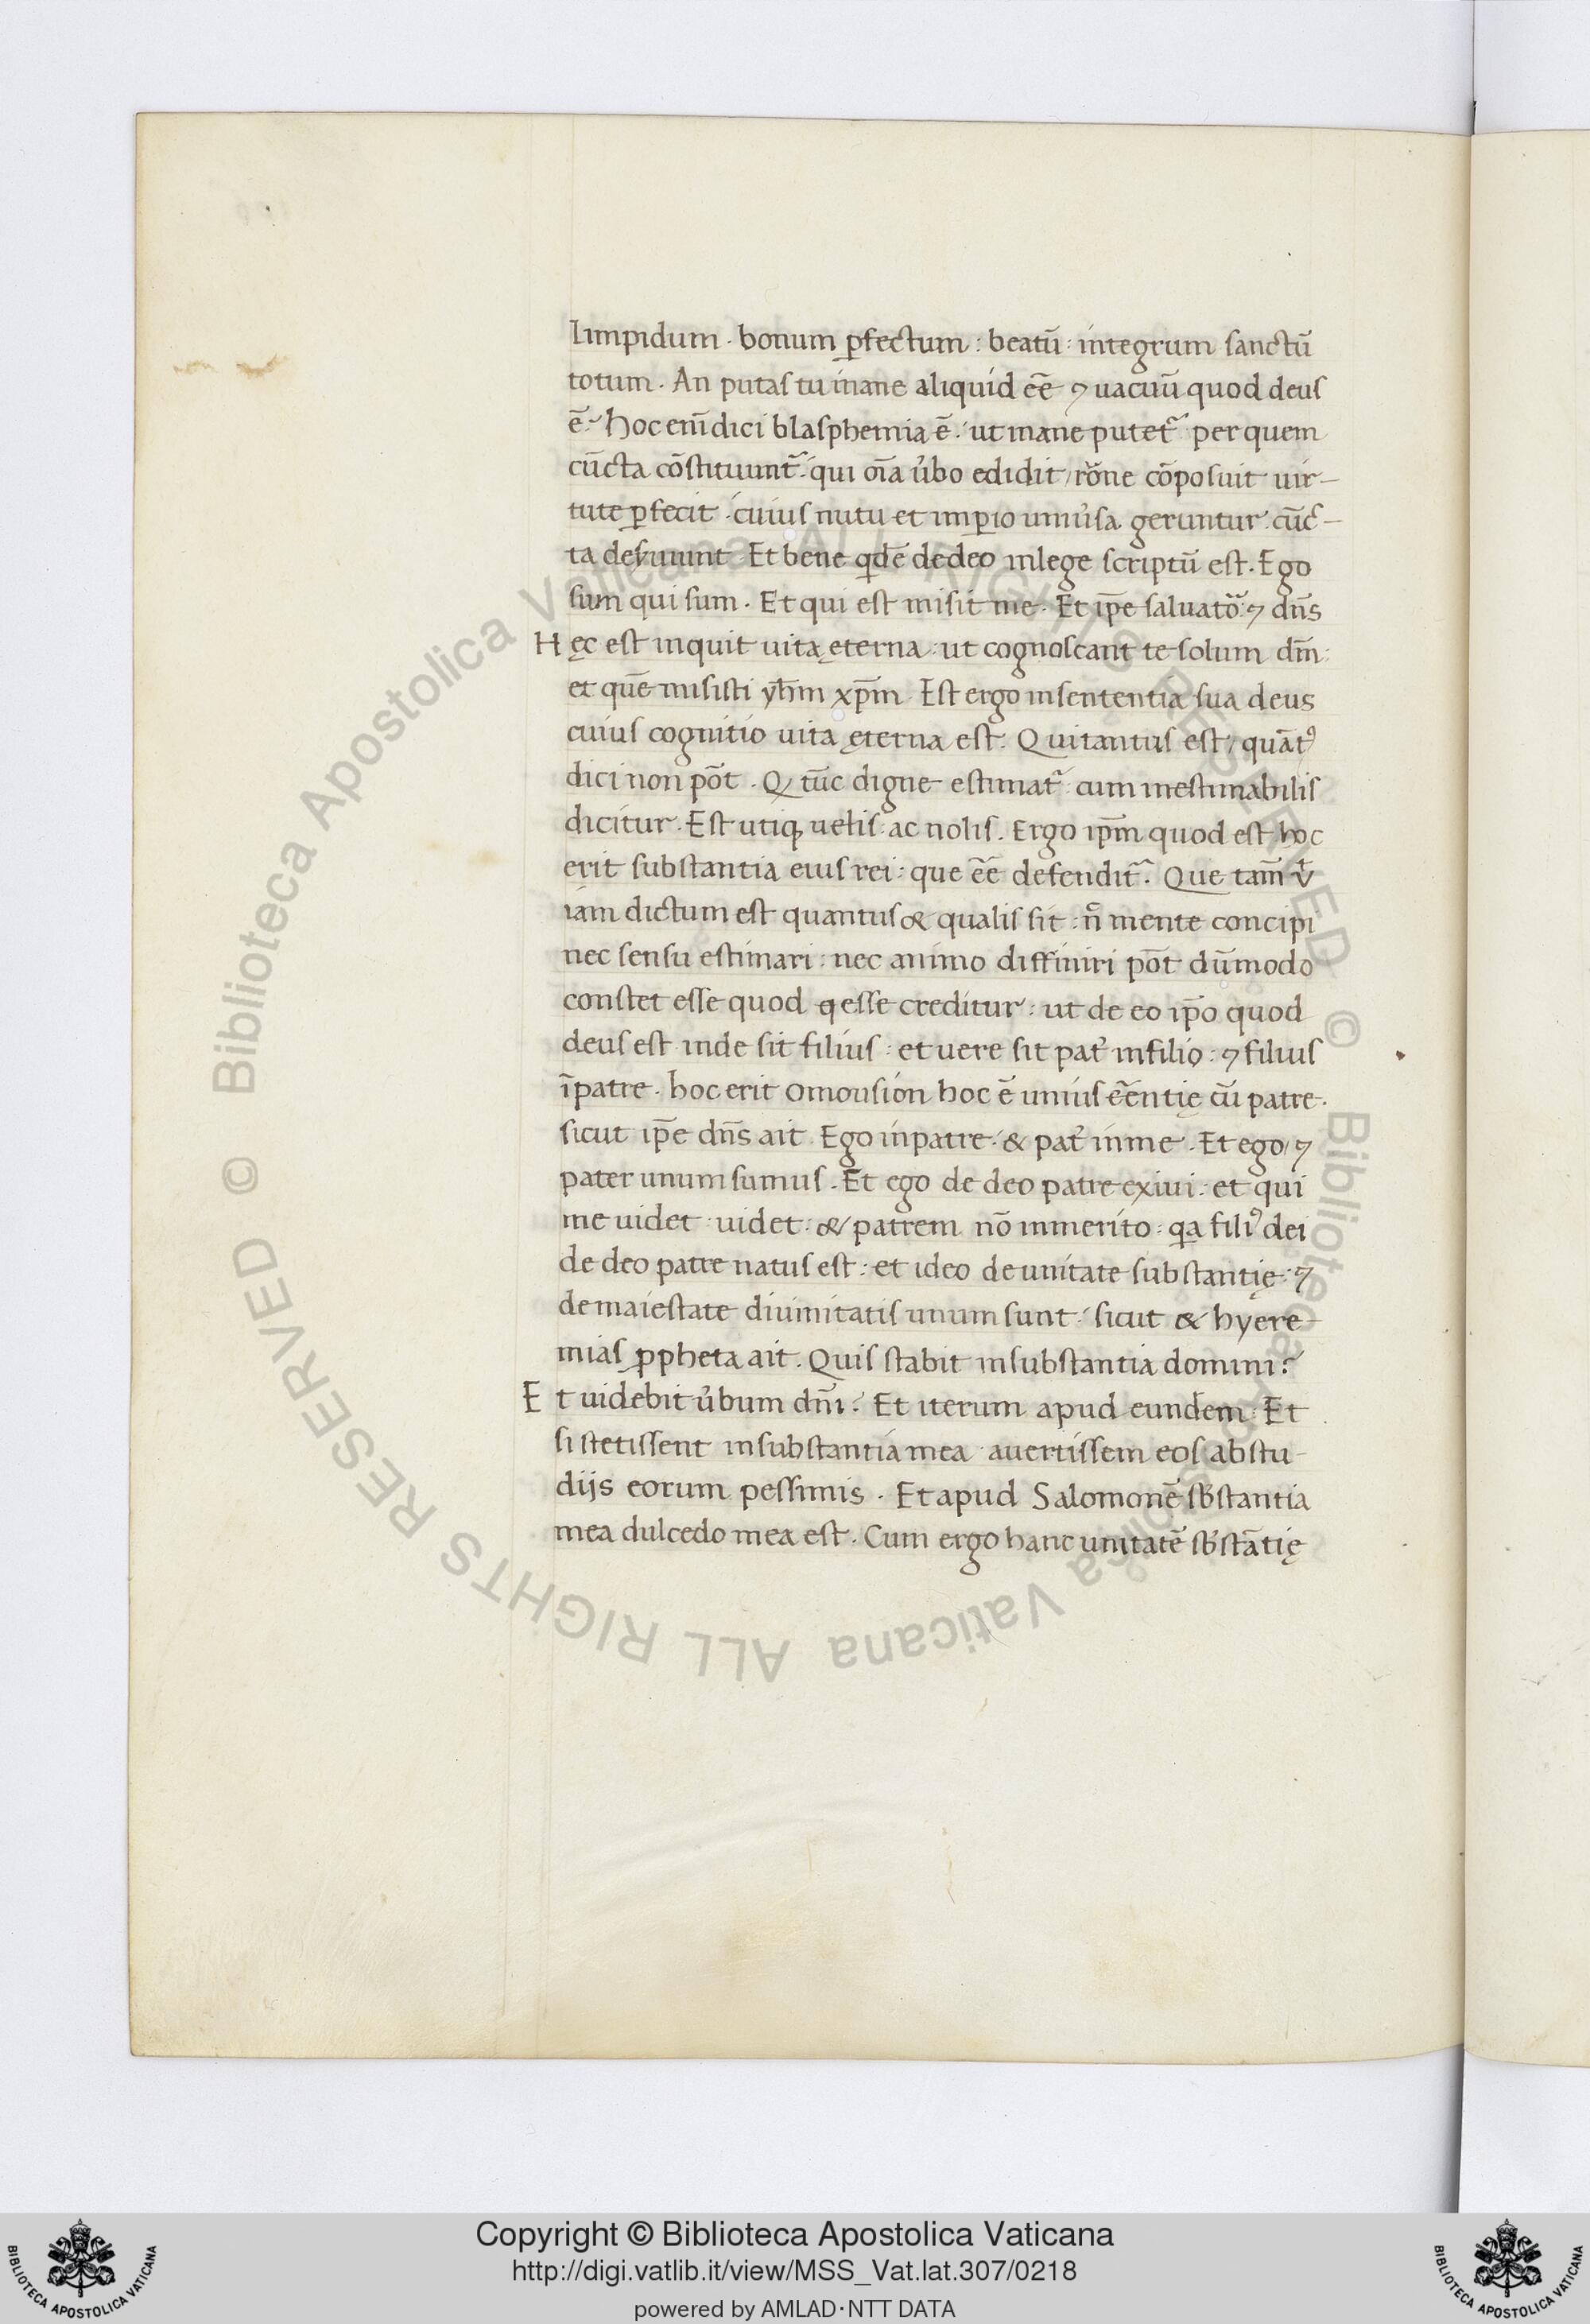 Limpidum · bonum ꝑfectum : beatū : integrum sanctū
totum · An putas tu inane aliquid eē ⁊ uacuū quod deus
ē : Hoc eni̅ dici blasphemia ē · ut inane putet̃ per quem
cūcta cōstituunt̃ : qui oi̅a u̓bo edidit / rōne cōposuit uir-
tute ꝑfecit · cuius nutu et imꝑio uniu̓sa geruntur : cūc-
ta deseruiunt · Et bene qde̅ de deo in lege scriptū est · Ego
sum qui sum · Et qui est misit me · Et ip̅e saluator̃ : ⁊ dn̅s
Hęc est inquit uita ęterna : ut cognoscant te solum dm̅ :
et que̅ misisti yhm̅ xp̅m · Est ergo in sententia sua deus
cuius cognitio uita ęterna est · Qui tantus est / quātꝰ
dici non pōt · Q tūc digne estimat̃ cum inestimabilis
dicitur · Est utiqꝫ uelis : ac nolis · Ergo ip̅m quod est hoc
erit substantia eius rei : que eē defendit̃ · Que tam̅ ut
iam dictum est quantus & qualis sit : n̅ mente concipi
nec sensu estimari : nec animo diffiniri pōt dūmodo
constet esse quod esse creditur : ut de eo ip̅o quod
deus est inde sit filius : et uere sit pat̓ in filio : ⁊ filius
i̅ patre · hoc erit omousion hoc ē unius eēntię cū patre ·
sicut ip̅e dn̅s ait · Ego in patre : & pat̓ in me · Et ego / ⁊
pater unum sumus · Et ego de deo patre exiui : et qui
me uidet : uidet : & patrem nō inmerito : qa filiꝰ dei
de deo patre natus est : et ideo de unitate substantię : ⁊
de maiestate diuinitatis unum sunt : sicut & hyere-
mias ꝓpheta ait · Quis stabit in substantia domini ?
Et uidebit u̓bum dn̅i ? Et iterum apud eundem : Et
si stetissent in substantia mea auertissem eos ab stu-
dijs eorum pessimis · Et apud Salomonē sb̓stantia
mea dulcedo mea est · Cum ergo hanc unitatē sb̓stātię
© Biblioteca Apostolica Vaticana ALL RIGHTS RESERVED © Biblioteca Apostolica Vaticana ALL RIGHTS RESERVED
Copyright © Biblioteca Apostolica Vaticana
http://digi.vatlib.it/view/MSS_Vat.lat.307/0218
powered by AMLAD·NTT DATA
BIBLIOTECA APOSTOLICA VATICANA
BIBLIOTECA APOSTOLICA VATICANA